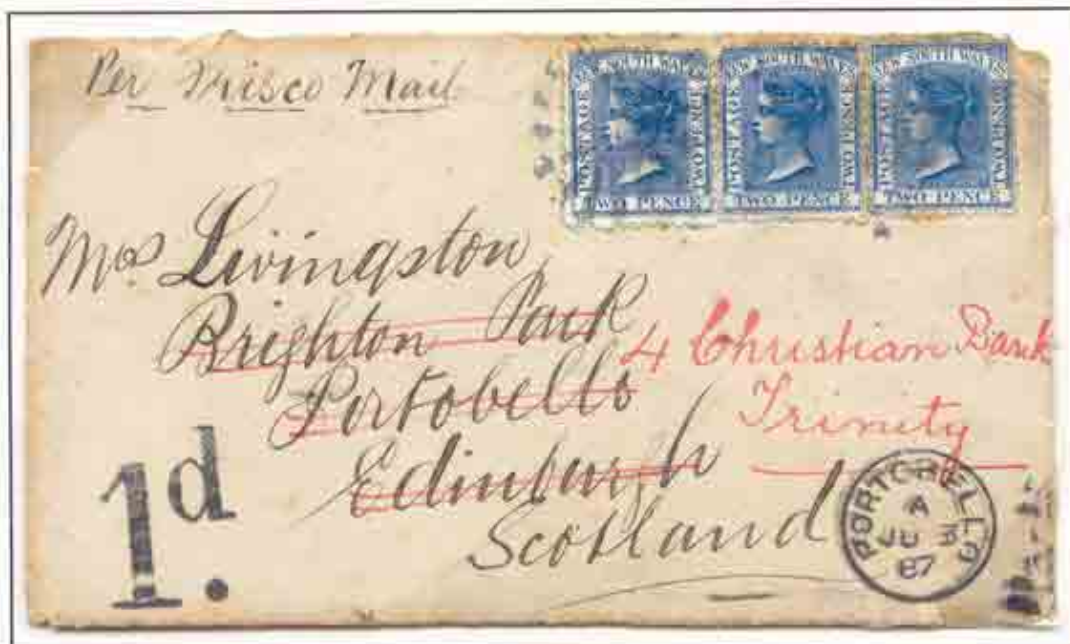 Per Frisco Mail
NEW SOUTH WALES
POSTAGE
TWO PENCE
TWO PENCE
NEW SOUTH WALES
POSTAGE
TWO PENCE
TWO PENCE
NEW SOUTH WALES
POSTAGE
TWO PENCE
TWO PENCE
Mrs Livingston
Brighton Park
Portobello
Edinburgh
Scotland
4 Christian Bank
Trinity
1d.
PORTOBELLO
A
JU 3
87